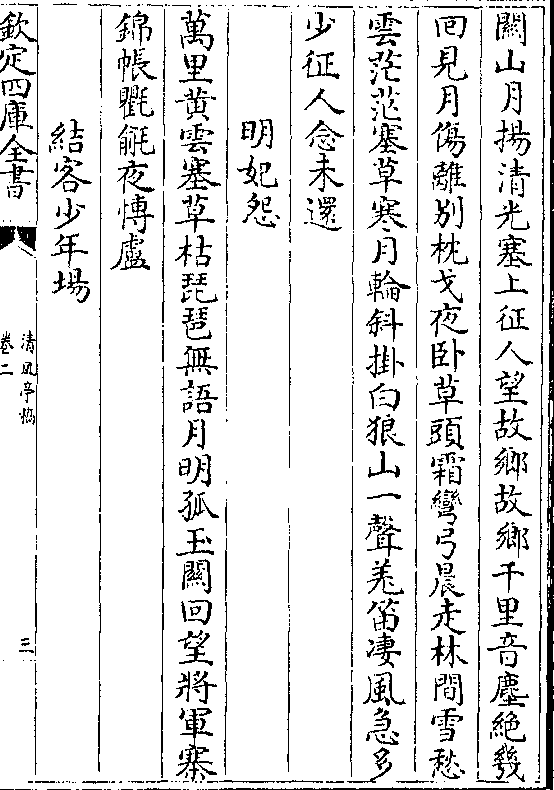 關山月揚清光塞上征人望故鄉故鄉千里音塵絶幾
回見月傷離别枕戈夜卧草頭霜彎弓晨走林間雪愁
雲茫茫塞草寒月輪斜掛白狼山一聲羌笛凄風急多
少征人念未還
明妃怨
萬里黄雲塞草枯琵琶無語月明孤玉關回望將軍寨
錦帳氍毹夜博盧
結客少年場
欽定四庫全書
清風亭稿
卷二
三